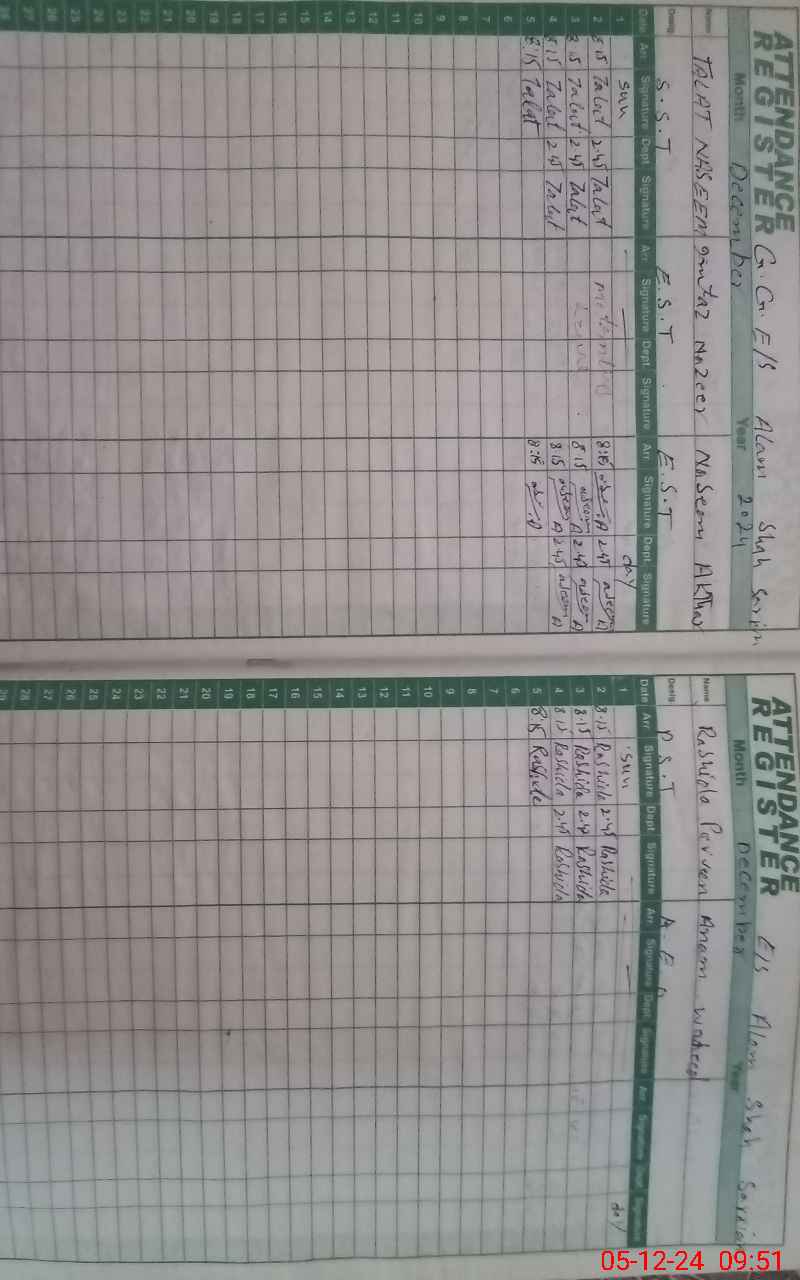 ATTENDANCE
REGISTER G.G.E/S Alam Shah
Month December Year 2024
Name TALAT NASEEM Nazeer Naseem Akhtar
Desig S.S.T E.S.T E.S.T
Date Arr Signature Dept Signature Arr Signature Dept Signature Arr Signature Dept Signature
1 Sun day
2 8:15 Talat 2.45 Talat 8:15 2.45
3 8.15 Talat 2.45 Talat 8.15 2.45
4 8.15 Talat 2.45 Talat 8.15 2.45
5 8:15 Talat 8:15
6
7
8
9
10
11
12
13
14
15
16
17
18
19
20
21
22
23
24
25
26
27
ATTENDANCE
REGISTER E/S Alam Shah
Month December Year
Name Rashida Parveen Anam Waheed
Desig P.S.T
Date Arr Signature Dept Signature Arr Signature Dept Signature Arr Signature Dept Signature
1 Sun day
2 8.15 Rashida 2.45 Rashida
3 8.15 Rashida 2.4 Rashida
4 8.15 Rashida 2.45 Rashida
5 8:15 Rashida
6
7
8
9
10
11
12
13
14
15
16
17
18
19
20
21
22
23
24
25
26
27
28
29
05-12-24 09:51